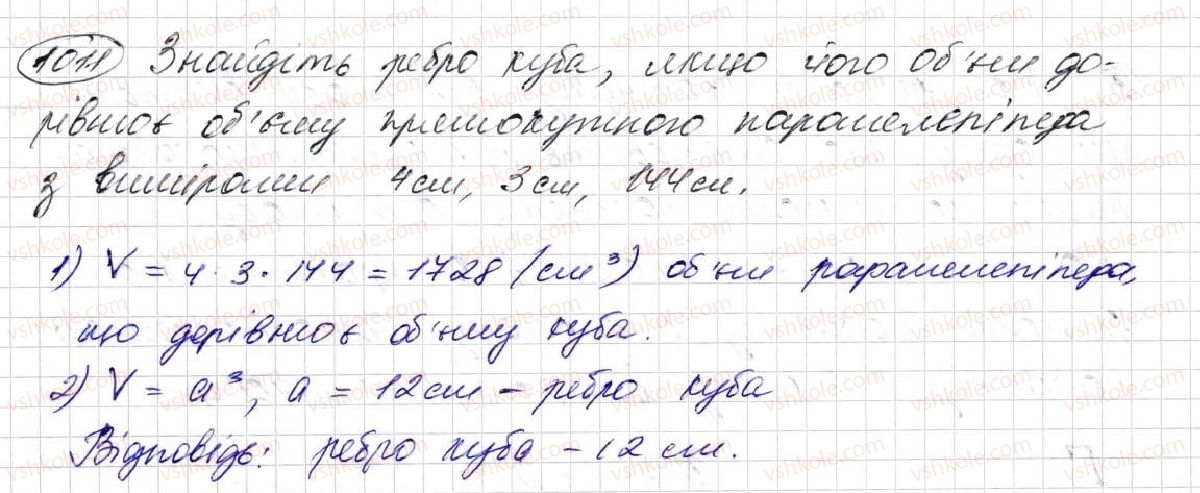 1011 Знайдіть ребро куба, якщо його об'єм до-
рівнює об'єму прямокутного паралелепіпеда
з вимірами 4см, 3см, 144см.
1) V = 4 · 3 · 144 = 1728 (см³) об'єм паралелепіпеда,
що дорівнює об'єму куба.
2) V = a³, a = 12см – ребро куба
Відповідь: ребро куба – 12 см.